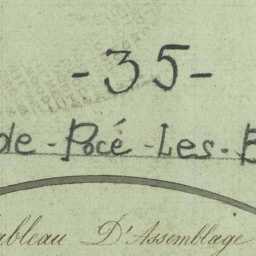 -35-
de-Pocé-Les-B
Tableau D'Assemblage